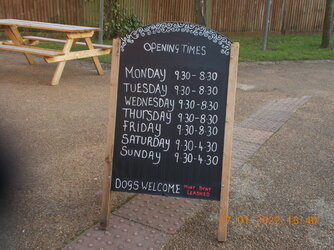 OPENING TIMES
MONDAY 9.30 - 8.30
TUESDAY 9.30 - 8.30
WEDNESDAY 9.30 - 8.30
THURSDAY 9.30 - 8.30
FRIDAY 9.30 - 8.30
SATURDAY 9.30 - 4.30
SUNDAY 9.30 - 4.30
DOGS WELCOME MUST STAY
LEASHED